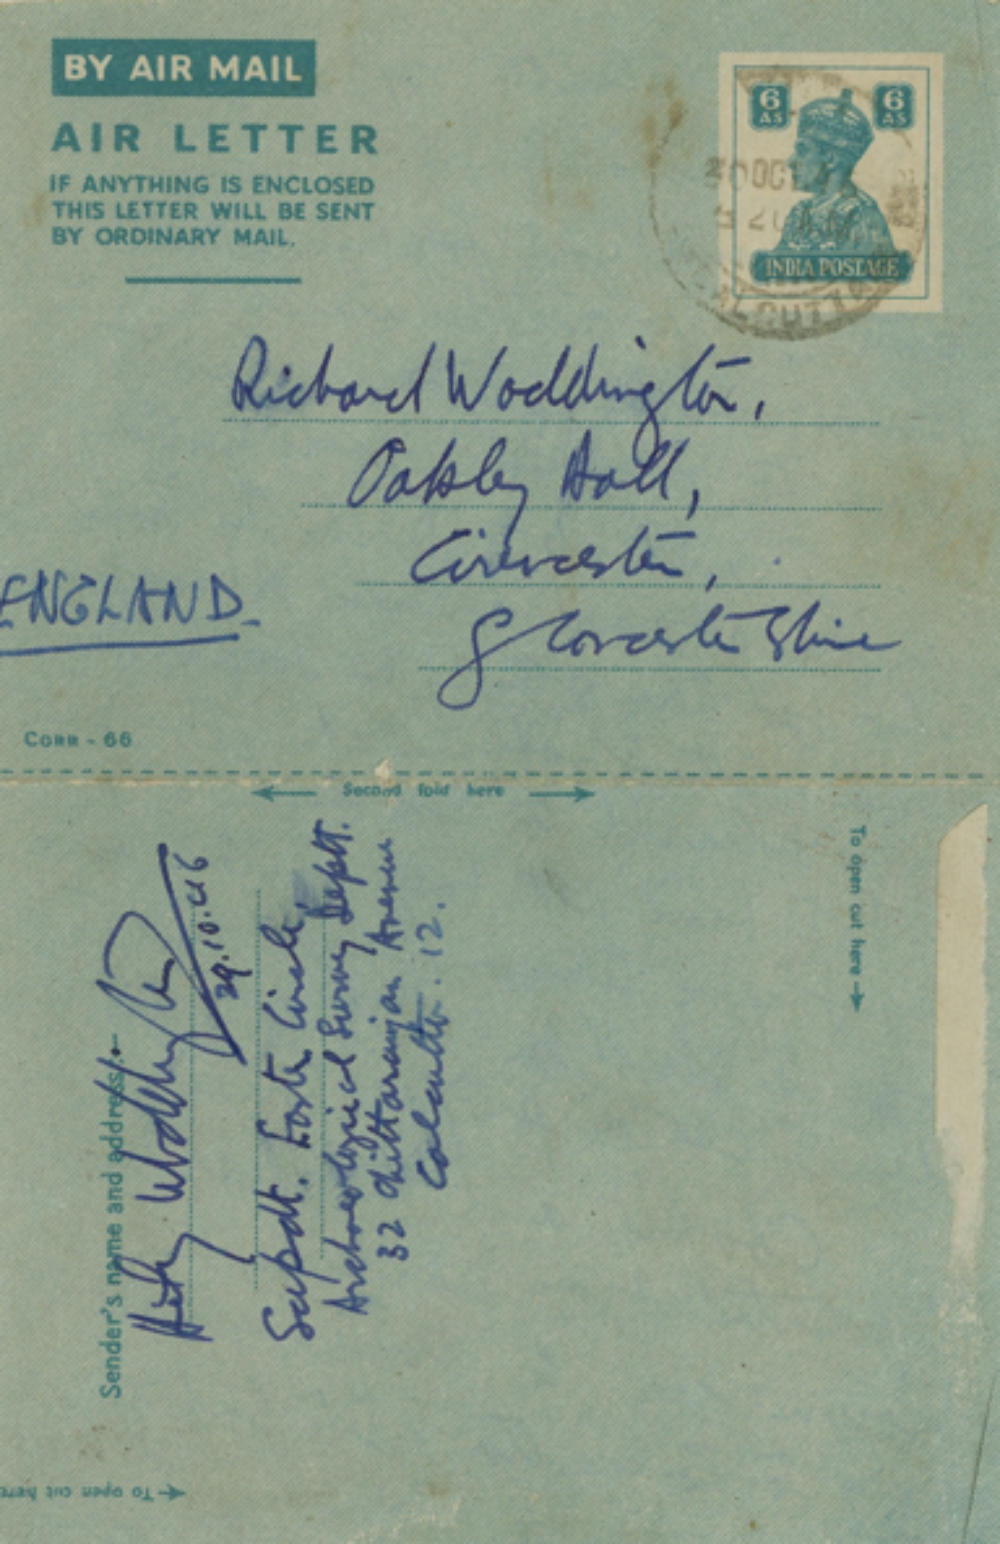 BY AIR MAIL
AIR LETTER
IF ANYTHING IS ENCLOSED
THIS LETTER WILL BE SENT
BY ORDINARY MAIL.
6 AS
6 AS
INDIA POSTAGE
30 OCT
CALCUTTA
Richard Waddington,
Oakley Hall,
Cirencester,
Gloucestershire
ENGLAND
CORR - 66
Second fold here
To open cut here
Sender's name and address:-
Waddington
29.10.46
Supdt. Eastern Circle,
Archaeological Survey Deptt.
32 Chittaranjan Avenue
Calcutta. 12.
To open cut here